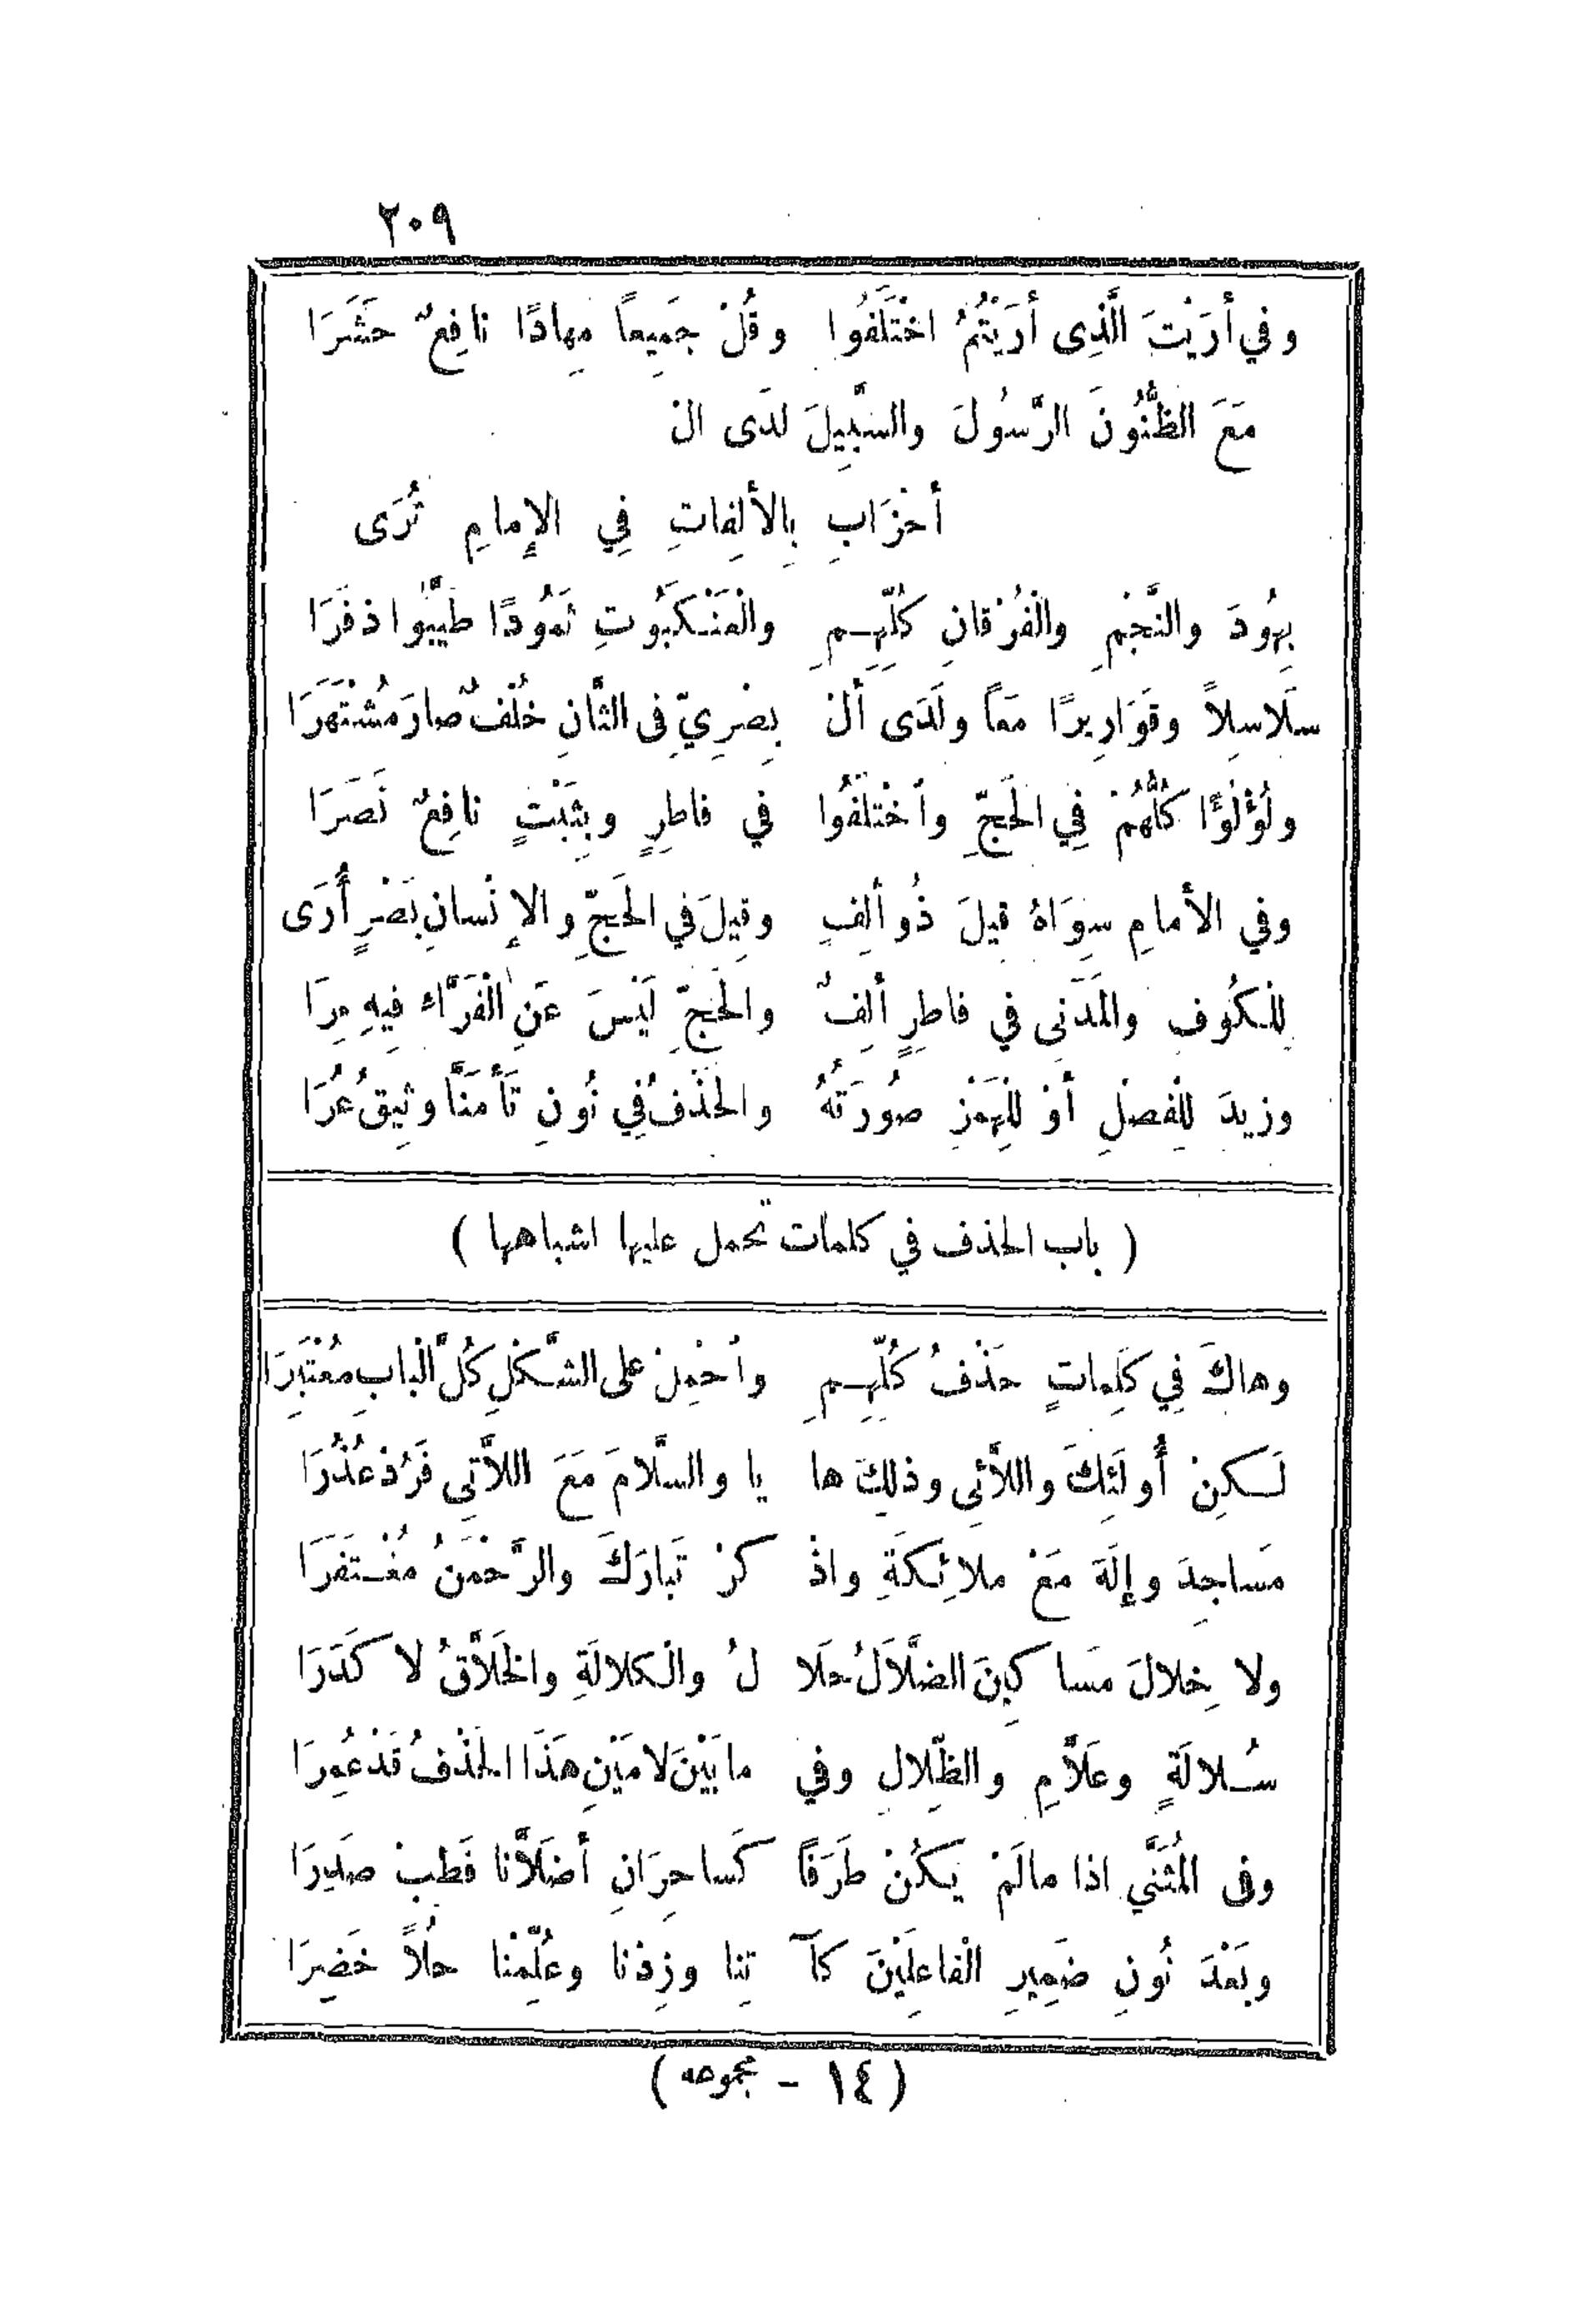 ٢٠٩
وفي أَرَيْتَ الَّذِى أَرَيْتُمُ اخْتَلَفُوا وقُلْ جَمِيعاً مِهادًا نافِعٌ حَشَرَا
مَعَ الظُّنُونَ الرَّسُولَ والسَّبِيلَ لدَى الْ
أَحْزَابِ بِالأَلِفاتِ فِي الإِمامِ تُرَى
بِهُودَ والنَّجْمِ والْفُرْقانِ كُلِّهِـمِ والْعَنْـكَبُوتِ ثَمُودًا طَيَّبُوا ذفَرَا
سَلَاسِلاً وقوَارِيرًا مَعاً ولَدَى أَلْ بِصْرِيِّ فِى الثَّانِ خُلْفٌ صارَ مُشْتَهَرَا
ولُؤْلُؤًا كُلُّهُمْ فِي الحَجِّ وآخْتَلَفُوا في فاطِرٍ وبِثَبْتٍ نافِعٌ نَصَرَا
وفي الأمامِ سِوَاهُ قِيلَ ذُو أَلِفٍ وقِيلَ في الحَجِّ والإِنْسانِ بَصْرٍ أُرَى
لِلْـكُوفِ والمَدَنِى في فاطِرٍ أَلِفٌ والحَجِّ لَيْسَ عَنِ الْفَرَّاء فِيهِ مِرَا
وزيدَ لِلْفصْلِ أَوْ لِلْهَمْزِ صُورَتُهُ والحَذْفُ فِي نُونِ تَأْمَنَّا وثِيقُ عُرَا
( باب الحذف في كلمات تحمل عليها اشباهها )
وهاكَ فِي كَلِماتٍ حَذْفُ كُلِّهِـمِ وآحْمِلْ على الشَّـكْلِ كُلَّ الْبابِ مُعْتَبِرَا
لَـكِنْ أُولَئِكَ واللاَّئِى وذلِكَ ها يا والسَّلامَ مَعَ اللاَّتِي فَرُدْ غُدُرَا
مَساجِدَ وإِلَهَ مَعْ ملائِـكَةِ واذْ كرْ تَبارَكَ والرَّحْمَنُ مُغْـتَفَرَا
ولا خِلالَ مَسا كِينَ الضَّلاَلُ حَلا لُ والْـكلالَةِ والخَلاَّقُ لا كَدَرَا
سُـلالَةٍ وغلاَمٍ والظِّلالِ وفي ما بَيْنَ لامَيْنِ هَذَا الحَذْفُ قَدْ عُمِرَا
وفى المُثَنَّي اذا مالَمْ يَـكُنْ طَرَفًا كَساحِرَانِ أَضَلاَّنا فَطِبْ صَدَرَا
وبَعْدَ نُونِ ضَمِيرِ الْفاعِلَيْنَ كآ تِنا وزِدْنا وعُلِّمْنا حلاً خَضِرَا
( ١٤ - مجموعه )